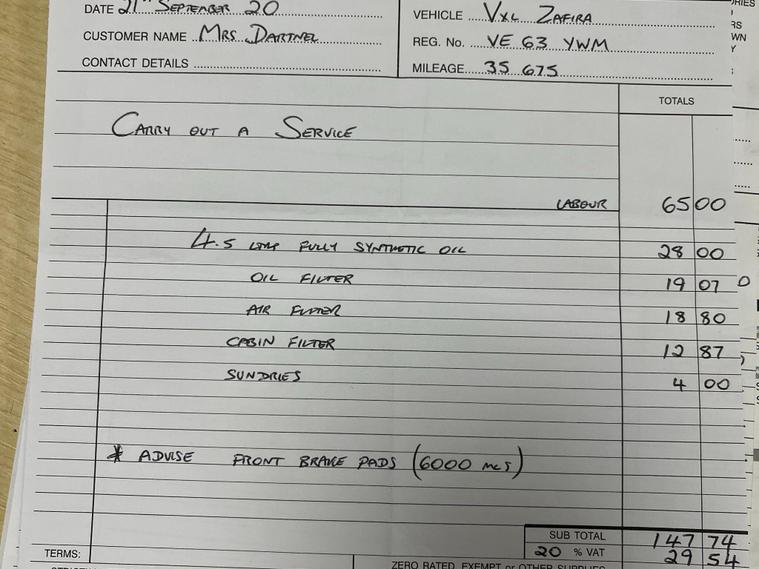 DATE 21st SEPTEMBER 20
VEHICLE VXL ZAFIRA
CUSTOMER NAME MRS DARTNEL
REG. No. VE 63 YWM
CONTACT DETAILS
MILEAGE 35 675
TOTALS
CARRY OUT A SERVICE
LABOUR 65 00
4.5 LTRS FULLY SYNTHETIC OIL 28 00
OIL FILTER 19 07
AIR FILTER 18 80
CABIN FILTER 12 87
SUNDRIES 4 00
* ADVISE FRONT BRAKE PADS (6000 MLS)
SUB TOTAL 147 74
TERMS: 20 % VAT 29 54
ZERO RATED, EXEMPT or OTHER SUPPLIES